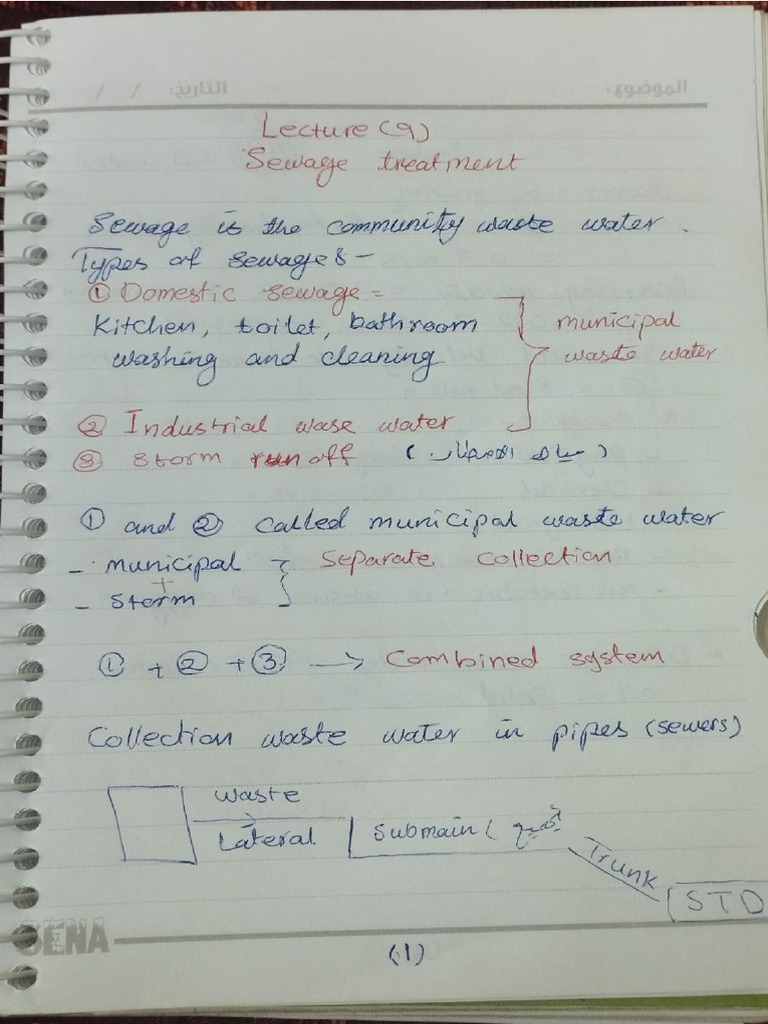 الموضوع: التاريخ: / /
Lecture (9)
Sewage treatment
Sewage is the community waste water.
Types of sewage :-
① Domestic sewage =
Kitchen, toilet, bathroom
washing and cleaning
municipal
waste water
② Industrial wase water
③ Storm run off (مياه الامطار)
① and ② called municipal waste water
- municipal
+
- storm
separate collection
① + ② + ③ → Combined system
Collection waste water in pipes (sewers)
waste
Lateral
Submain (
Trunk
STD
SENA
(1)